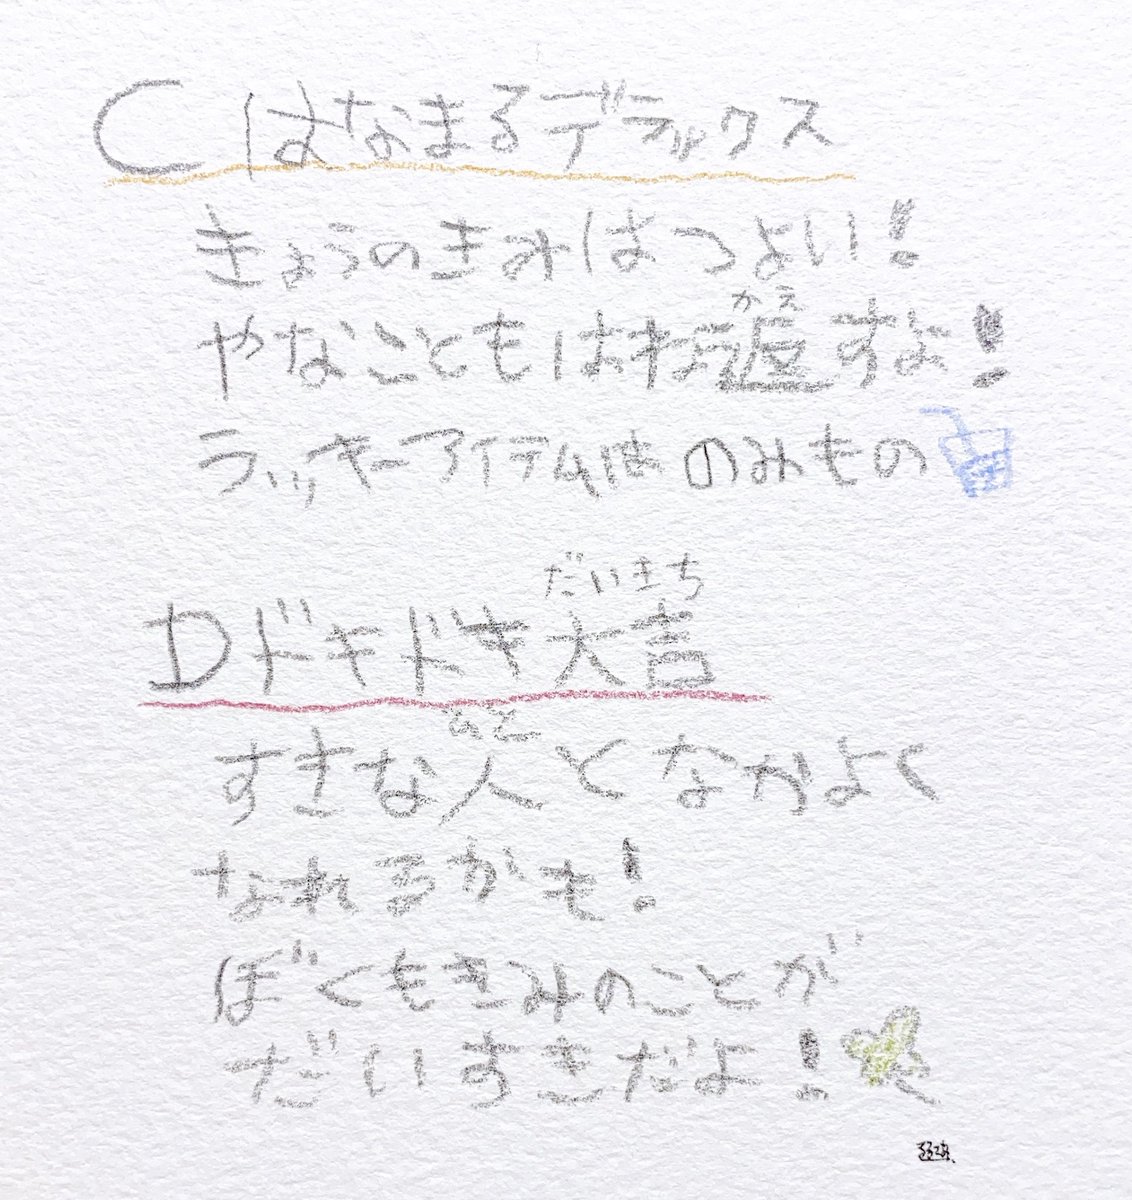 C はなまるデラックス
きょうのきみはつよい!
やなこともはね返すよ!
かえ
ラッキーアイテムは のみもの
だいきち
D ドキドキ大吉
ひと
すきな人となかよく
なれるかも!
ぼくもきみのことが
だいすきだよ!